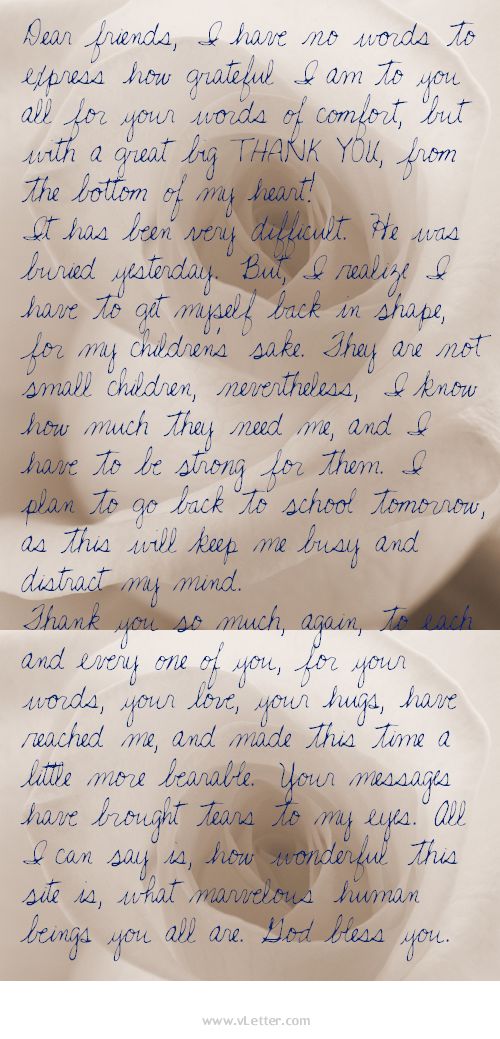 Dear friends, I have no words to
express how grateful I am to you
all for your words of comfort, but
with a great big THANK YOU, from
the bottom of my heart!
It has been very difficult. He was
buried yesterday. But, I realize I
have to get myself back in shape,
for my children's sake. They are not
small children, nevertheless, I know
how much they need me, and I
have to be strong for them. I
plan to go back to school tomorrow,
as this will keep me busy and
distract my mind.
Thank you so much, again, to each
and every one of you, for your
words, your love, your hugs, have
reached me, and made this time a
little more bearable. Your messages
have brought tears to my eyes. All
I can say is, how wonderful this
site is, what marvelous human
beings you all are. God bless you.
www.vLetter.com